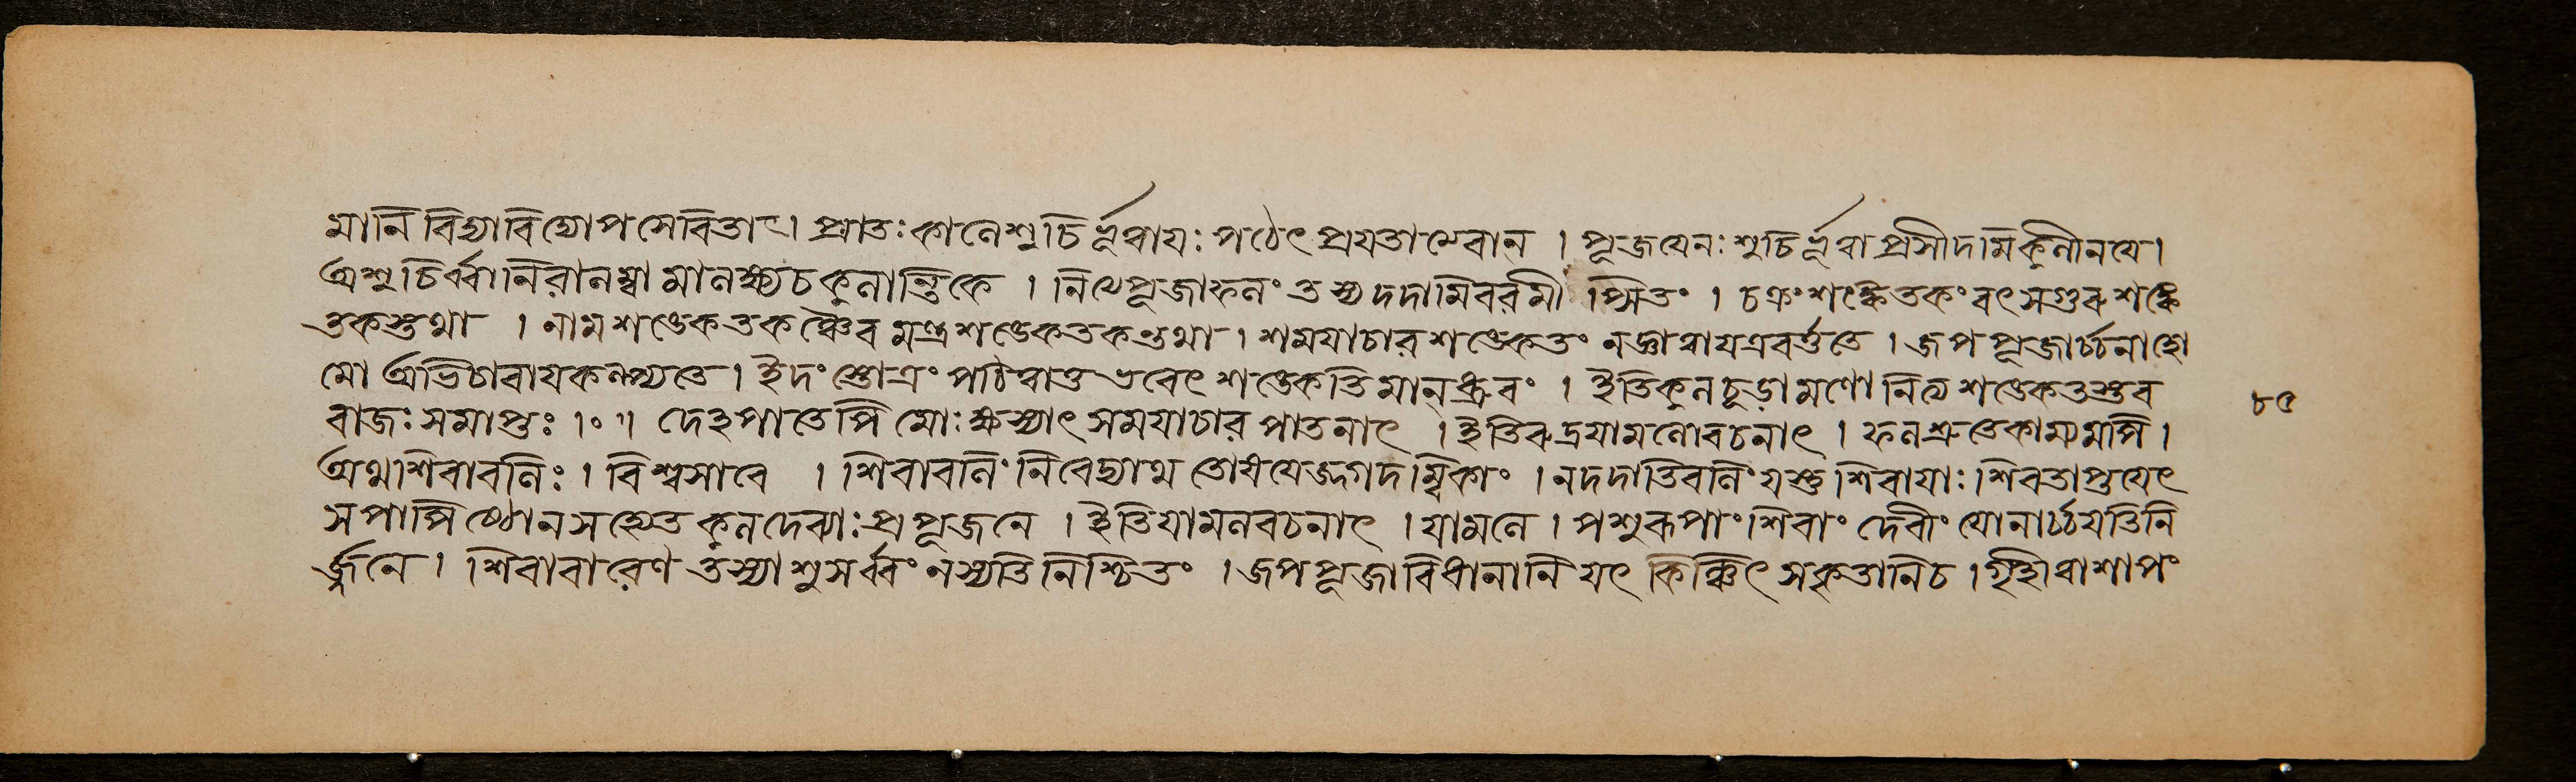 মানি বিদ্যাবিদ্যোপসেবিতাং। প্রাতঃকালেশুচির্ভূত্বাযঃ পঠেৎ প্রযতাত্মবান । পূজযেন্নঃ শুচির্ভূত্বা প্রসীদামিকুলীনযে।
অশুচির্ব্বানিরালম্বামানক্ষ্যচকুলান্তিকে । নিত্যেপূজাফলং তস্যদদামিবরমী প্সিতং । চক্রংশঙ্কেতকংবৎসগুরুশঙ্কে
তকস্তথা । নামশঙেকতকঞ্চৈব মন্ত্রশঙেকতকস্তথা। শমযাচারশঙেকতং নজ্ঞাত্বাযপ্রবর্ত্ততে । জপপূজার্চ্চনাহো
মো অভিচারাযকল্প্যতে। ইদংস্তোত্রং পঠিত্বাতু ভবেৎ শঙেকতিমান্ধ্রুবং । ইতিকুলচূড়ামণৌ নিত্যশঙেকতস্তব
রাজঃ সমাপ্তঃ ।॰॥ দেহপাতেপি মোঃক্ষস্যাৎ সমযাচারপাতনাৎ । ইতিরুদ্রযামলেবচনাৎ । ফলশ্রুতেকাম্যমপি।
অথশিবাবলিঃ । বিশ্বসারে । শিবাবলিং নিবেদ্যাথ তোষযেজ্জগদম্বিকাং । নদদাতিবলিং যস্তু শিবাযাঃ শিবতাপ্তুযেৎ
সপাপিষ্ঠোনসহ্যেত কুলদেব্যাঃ প্রপূজনে । ইতিযামলবচনাৎ । যামলে । পশুরূপাংশিবাং দেবীং যোনার্চ্চযতিনি
র্জ্জনে। শিবারাবেণ তস্যাশুসর্ব্বং নস্যতিনিশ্চিতং । জপপূজাবিধানানি যৎ কিঞ্চিৎ সকৃতানিচ । গৃহীত্বাশাপং
৮৫